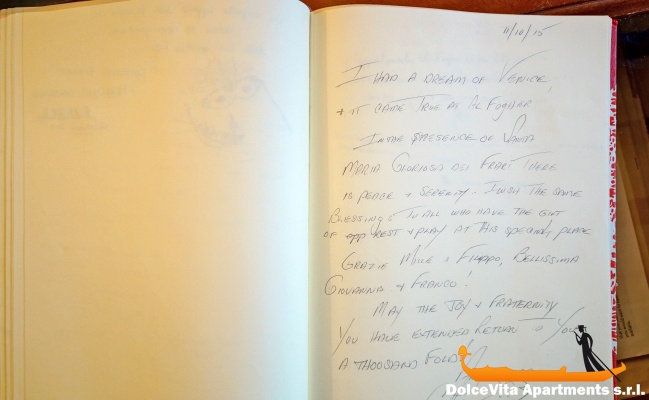 11/10/15
I HAD A DREAM OF VENICE
& IT CAME TRUE AT AL FOGHER
IN THE PRESENCE OF SANTA
MARIA GLORIOSA DEI FRARI THERE
IS PEACE & SERENITY. I WISH THE SAME
BLESSINGS TO ALL WHO HAVE THE GIFT
OF REST & PLAY AT THIS SPECIAL PLACE
GRAZIE MILLE FILIPPO, BELLISSIMA
GIOVANNA & FRANCO!
MAY THE JOY & FRATERNITY
YOU HAVE EXTENDED RETURN TO YOU
A THOUSAND FOLD!
DolceVita Apartments s.r.l.